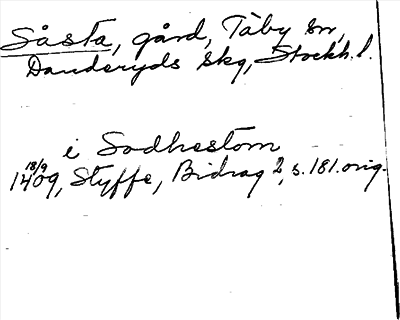 Såsta, gård, Täby sn,
Danderyds skg, Stockh. l.
i Sodhestom
18/9
1409, Styffe, Bidrag 2, s. 181. orig.